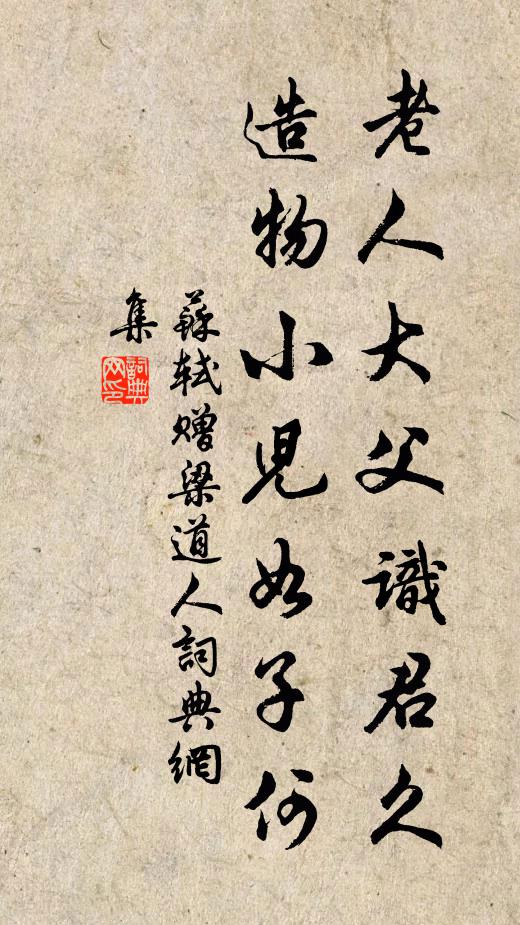 老人大父識君久
造物小兒如子何
蘇軾贈梁道人詞典網
集
詞典網印